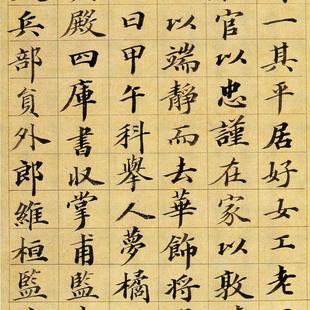 一其平居好女工老
官以忠謹在家以敦
以端靜而去華飾將
曰甲午科舉人夢橘
殿四庫書収掌甫監
兵部貟外郎維桓監